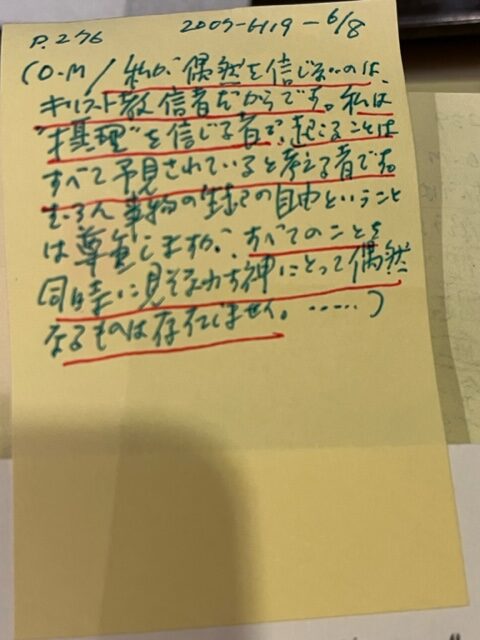 P.276 2009-6/19-6/8
(O.M / 私が"偶然を信じないのは、
キリスト教信者だからです。私は
"摂理"を信じる者で、起こることは
すべて予見されていると考える者です。
むろん事物の生起の自由ということ
は尊重しますが、すべてのことを
同時に見そなわす神にとって偶然
なるものは存在しません。……)